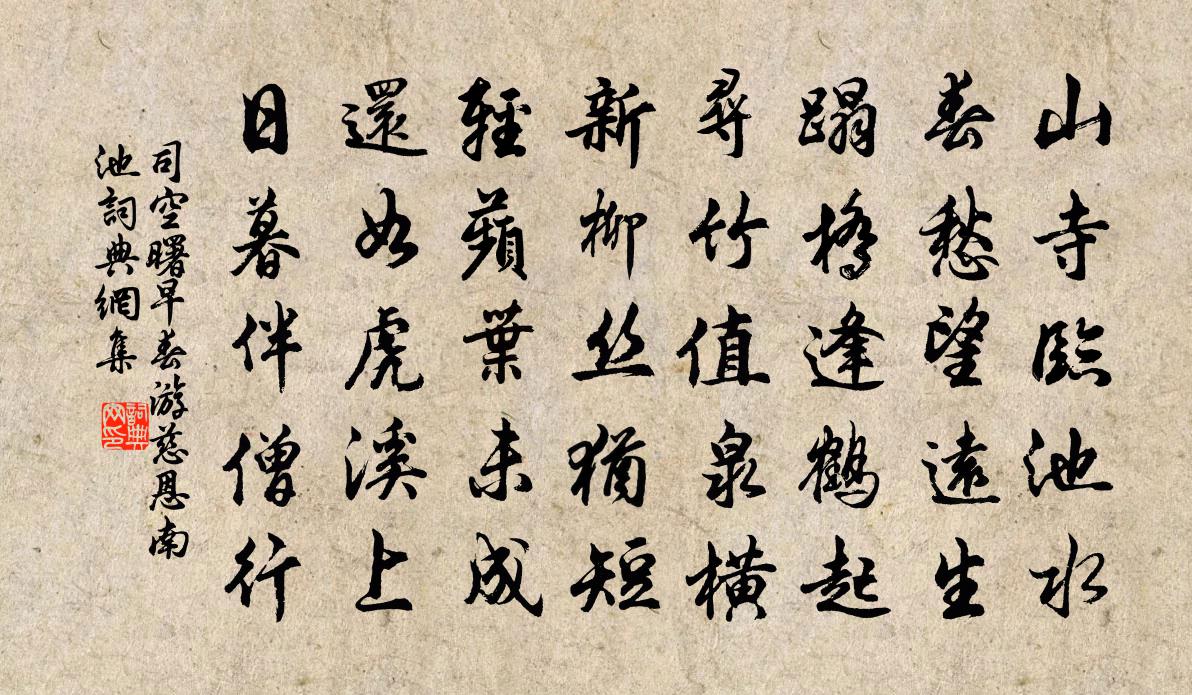 山寺臨池水
春愁望遠生
蹋橋逢鶴起
尋竹值泉橫
新柳絲猶短
輕蘋葉未成
還如虎溪上
日暮伴僧行
司空曙早春游慈恩南
池詞典網集
詞典网印